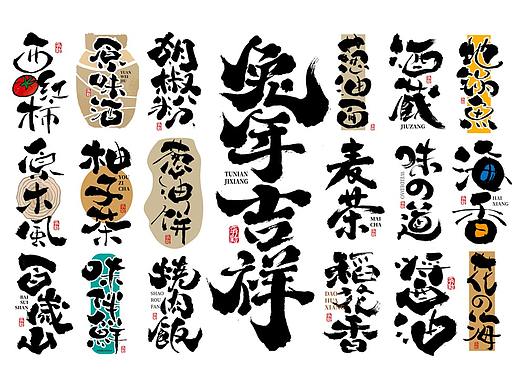 西红柿
原味酒
YUAN
WEI
JIU
胡椒粉
兔年吉祥
TUNIAN
JIXIANG
葱油面
酒藏
JIUZANG
地锅鱼
原木風
柚子茶
YOU
ZI
CHA
葱油餅
麦茶
MAI
CHA
味の道
WEIDEDAO
海香
HAI
XIANG
百歲山
BAI
SUI
SHAN
味伴鮮
燒肉飯
SHAO
ROU
FAN
稻花香
DAO
HUA
XIANG
醬油
花の海